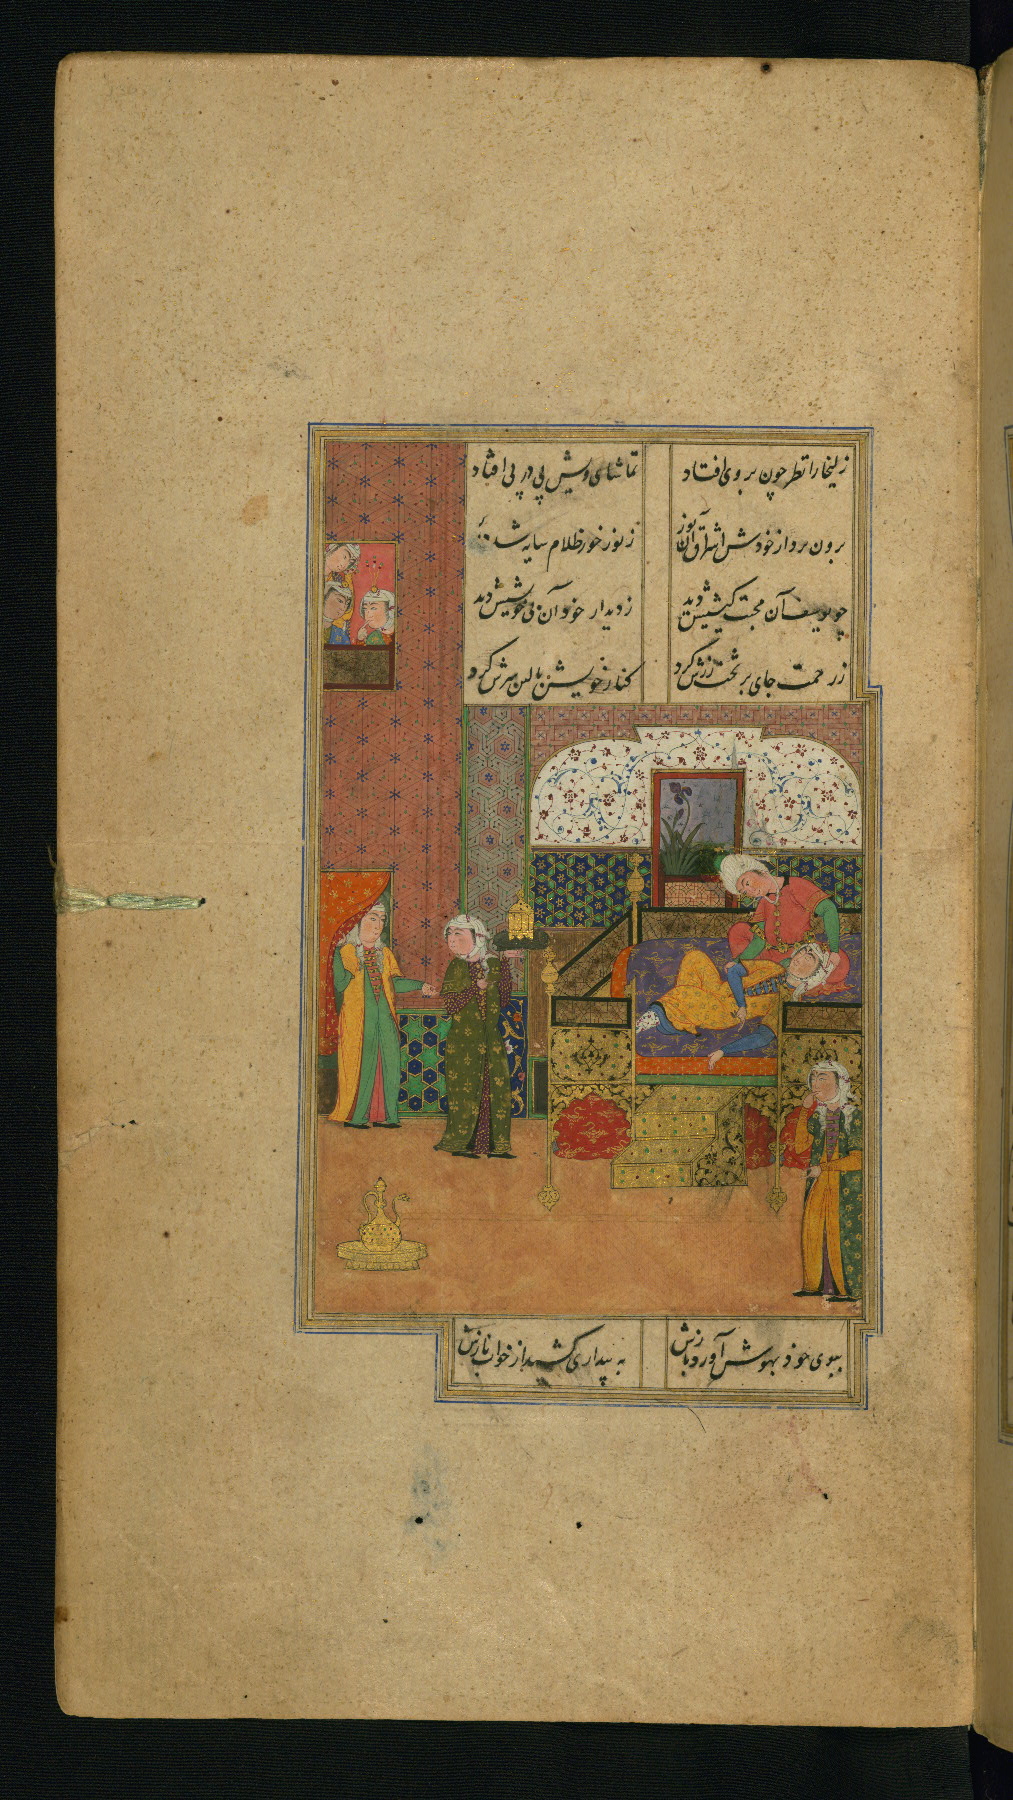 زلیخا را نظر چون بر وی افتاد تماشای ویش پی در پی افتاد
برون برد از خودش اشراق آن نور ز نور خور ظلام سایه شد دور
چو یوسف آن محبت کیشیش دید ز دیدار خود آن بی خویشیش دید
ز رحمت جای بر تخت زرش کرد کنار خویشتن بالین سرش کرد
ببوی خود بهوش آورد بازش به بیداری کشید از خواب نازش